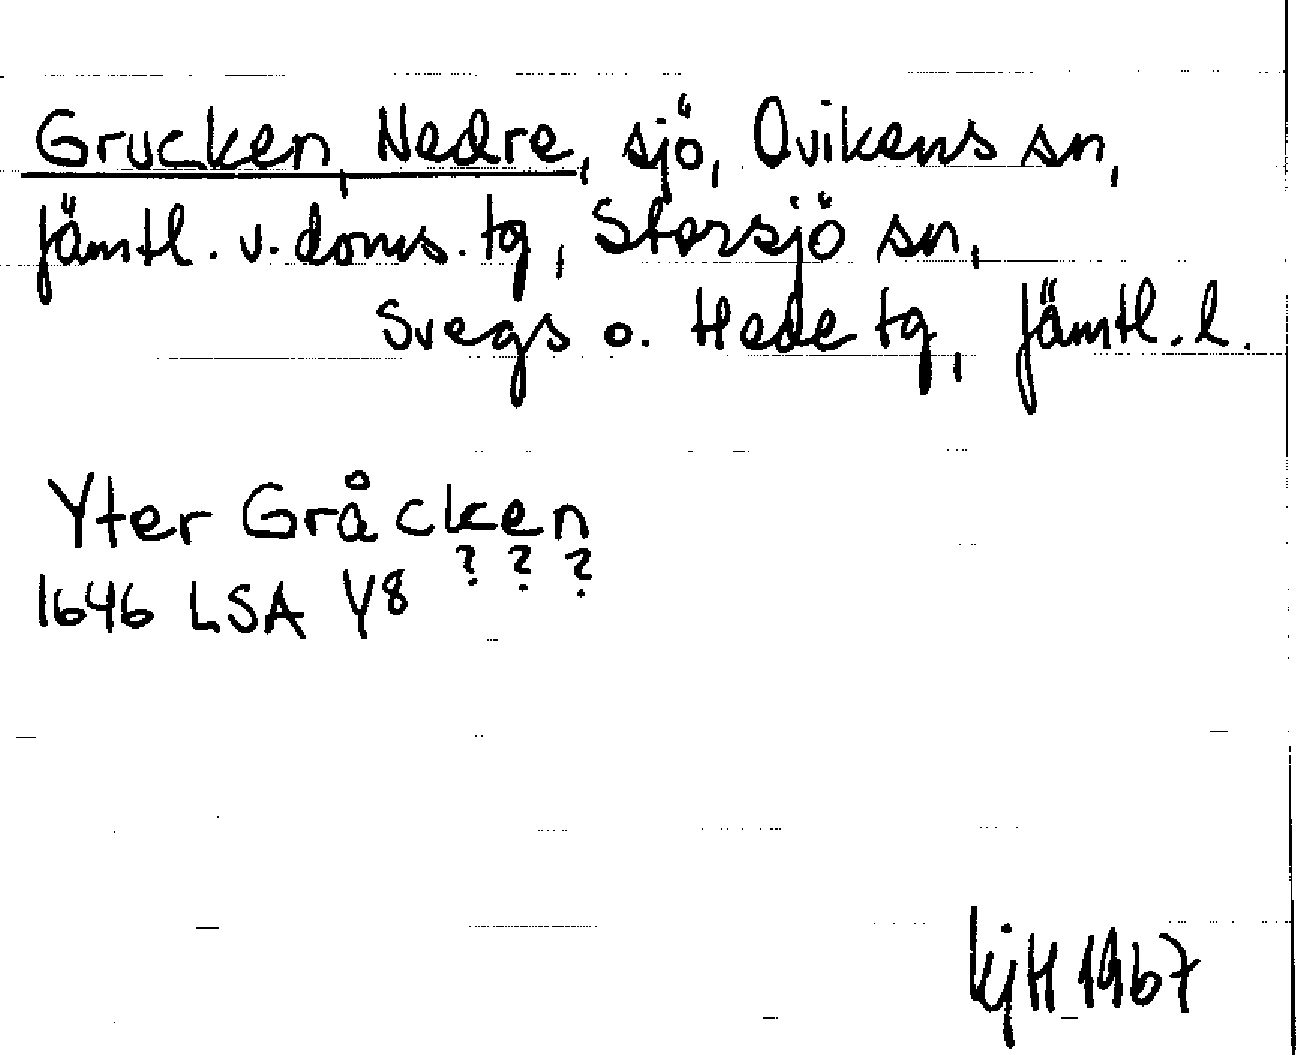 Grucken, Nedre, sjö, Ovikens sn,
Jämtl. v. doms. tg, Storsjö sn,
Svegs o. Hede tg, Jämtl. l.
Yter Gråcken
? ? ?
1646 LSA Y8
KjH 1967